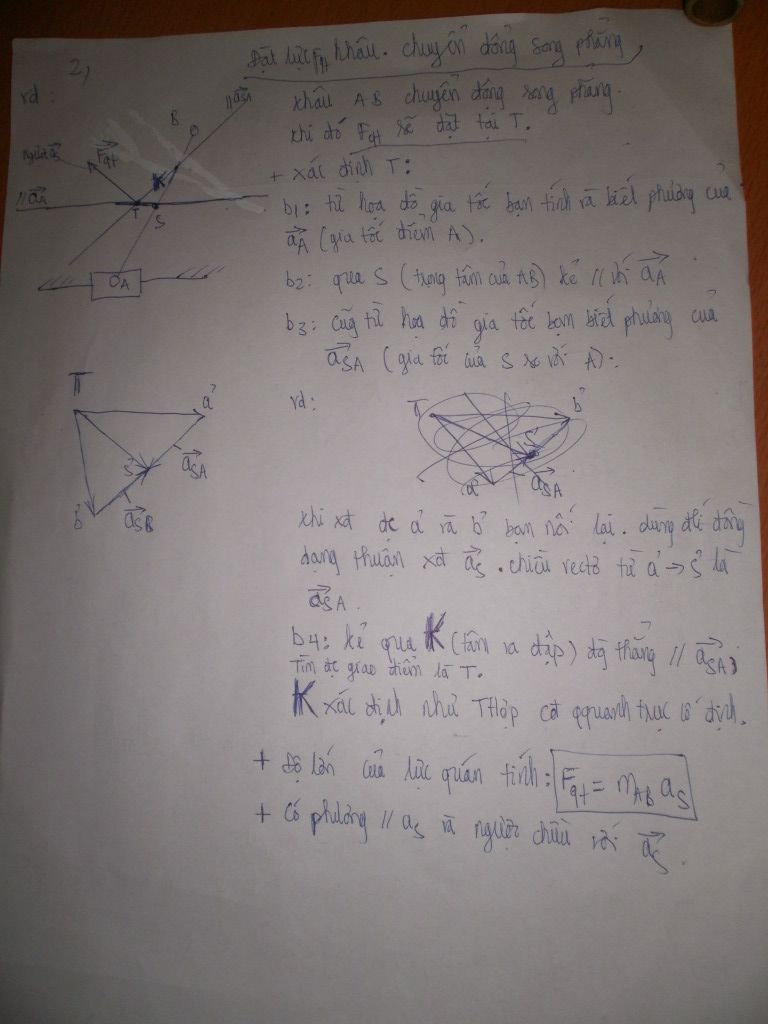 2,
Đặt lực Fqt khâu. chuyển động song phẳng
vd:
khâu AB chuyển động song phẳng.
khi đó Fqt sẽ đặt tại T.
+ xác định T:
b1: từ họa đồ gia tốc bạn tính và biết phương của
aA (gia tốc điểm A).
b2: qua S (trọng tâm của AB) kẻ // với aA
b3: cũg từ họa đồ gia tốc bạn biết phương của
aSA (gia tốc của S so với A).
//aSA
B
Fqt
K
//aA
T
S
A
π
a'
S'
aSA
b'
aSB
vd:
π
b'
S'
a'
aSA
khi xđ đc a' và b' bạn nối lại. dùng đlí đồng
dạng thuận xđ aS. chiều vectơ từ a' → S' là
aSA.
b4: kẻ qua K (tâm va đập) đg thẳng // aSA;
Tìm đc giao điểm là T.
K xác định như THợp cđ qquanh trục cố định.
+ Độ lớn của lực quán tính: Fqt = mAB aS
+ Có phương // aS và ngược chiều với aS.